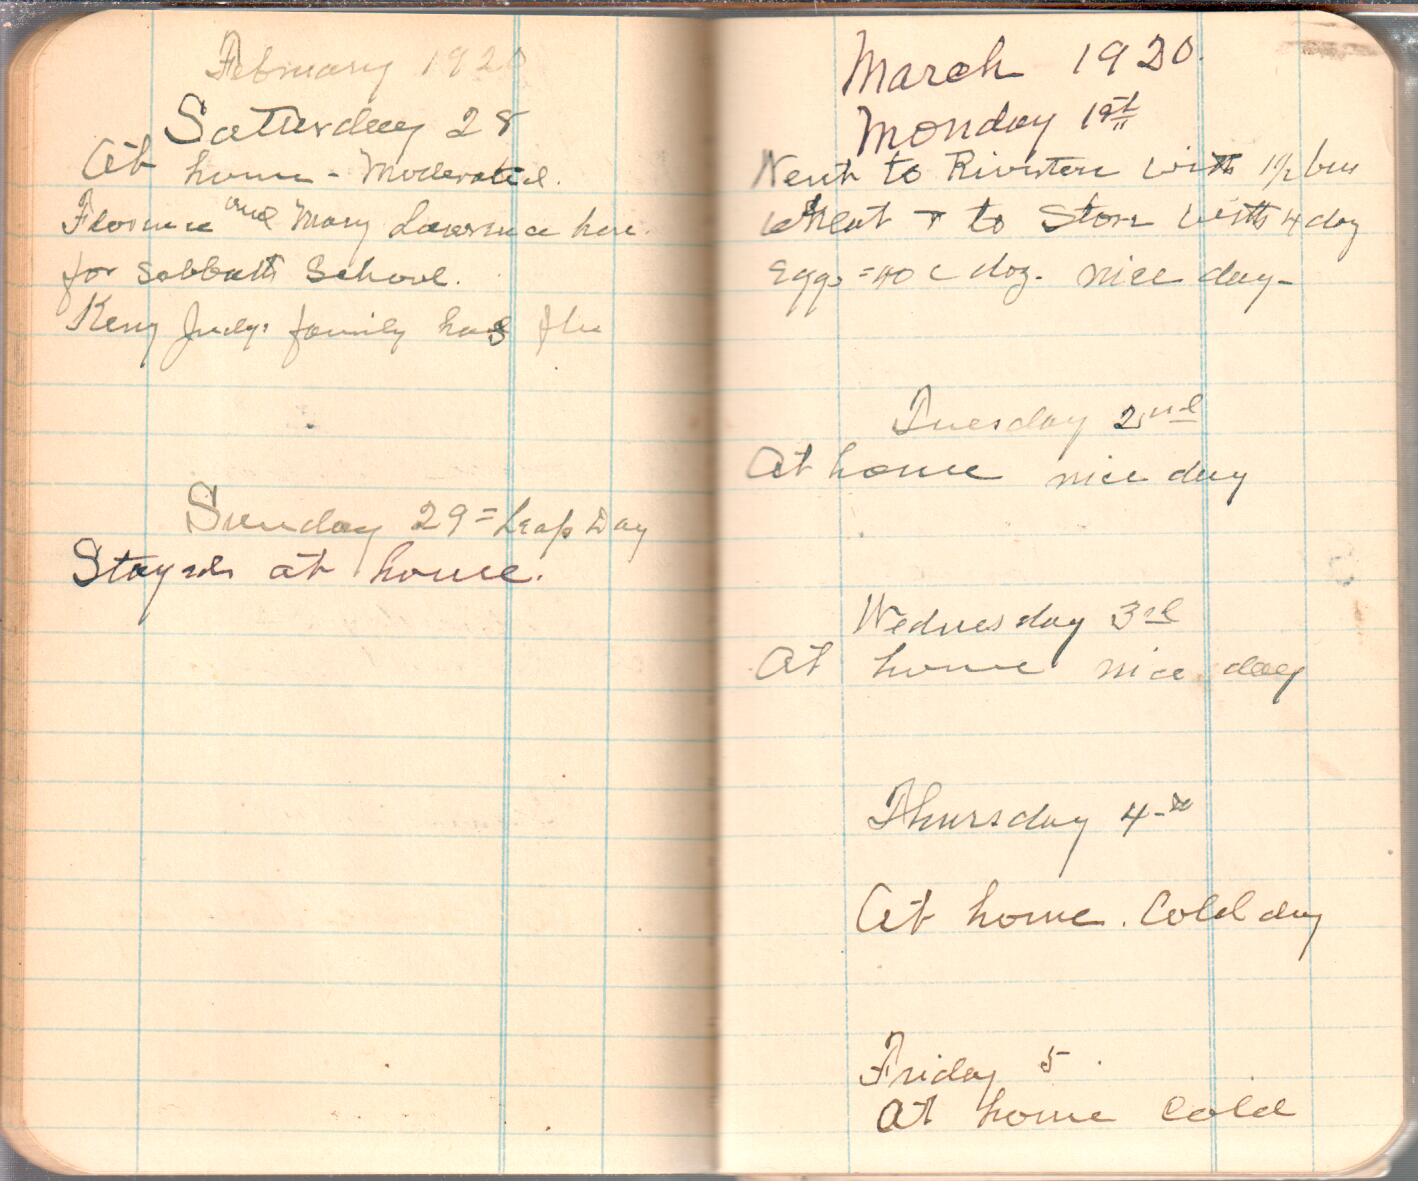 February 1920
Saturday 28
At home - Moderated.
Florence and Mary Lawrence here
for Sabbath School.
Judy's family has flu
Sunday 29 = Leap Day
Stayed at home.
March 1920.
Monday 1st
Went to Riverton with 1 1/2 bus
wheat + to Store with 4 doz
Eggs = 40 c doz. nice day-
Tuesday 2nd
At home nice day
Wednesday 3rd
At home nice day
Thursday 4-th
At home. Cold day
Friday 5
At home Cold